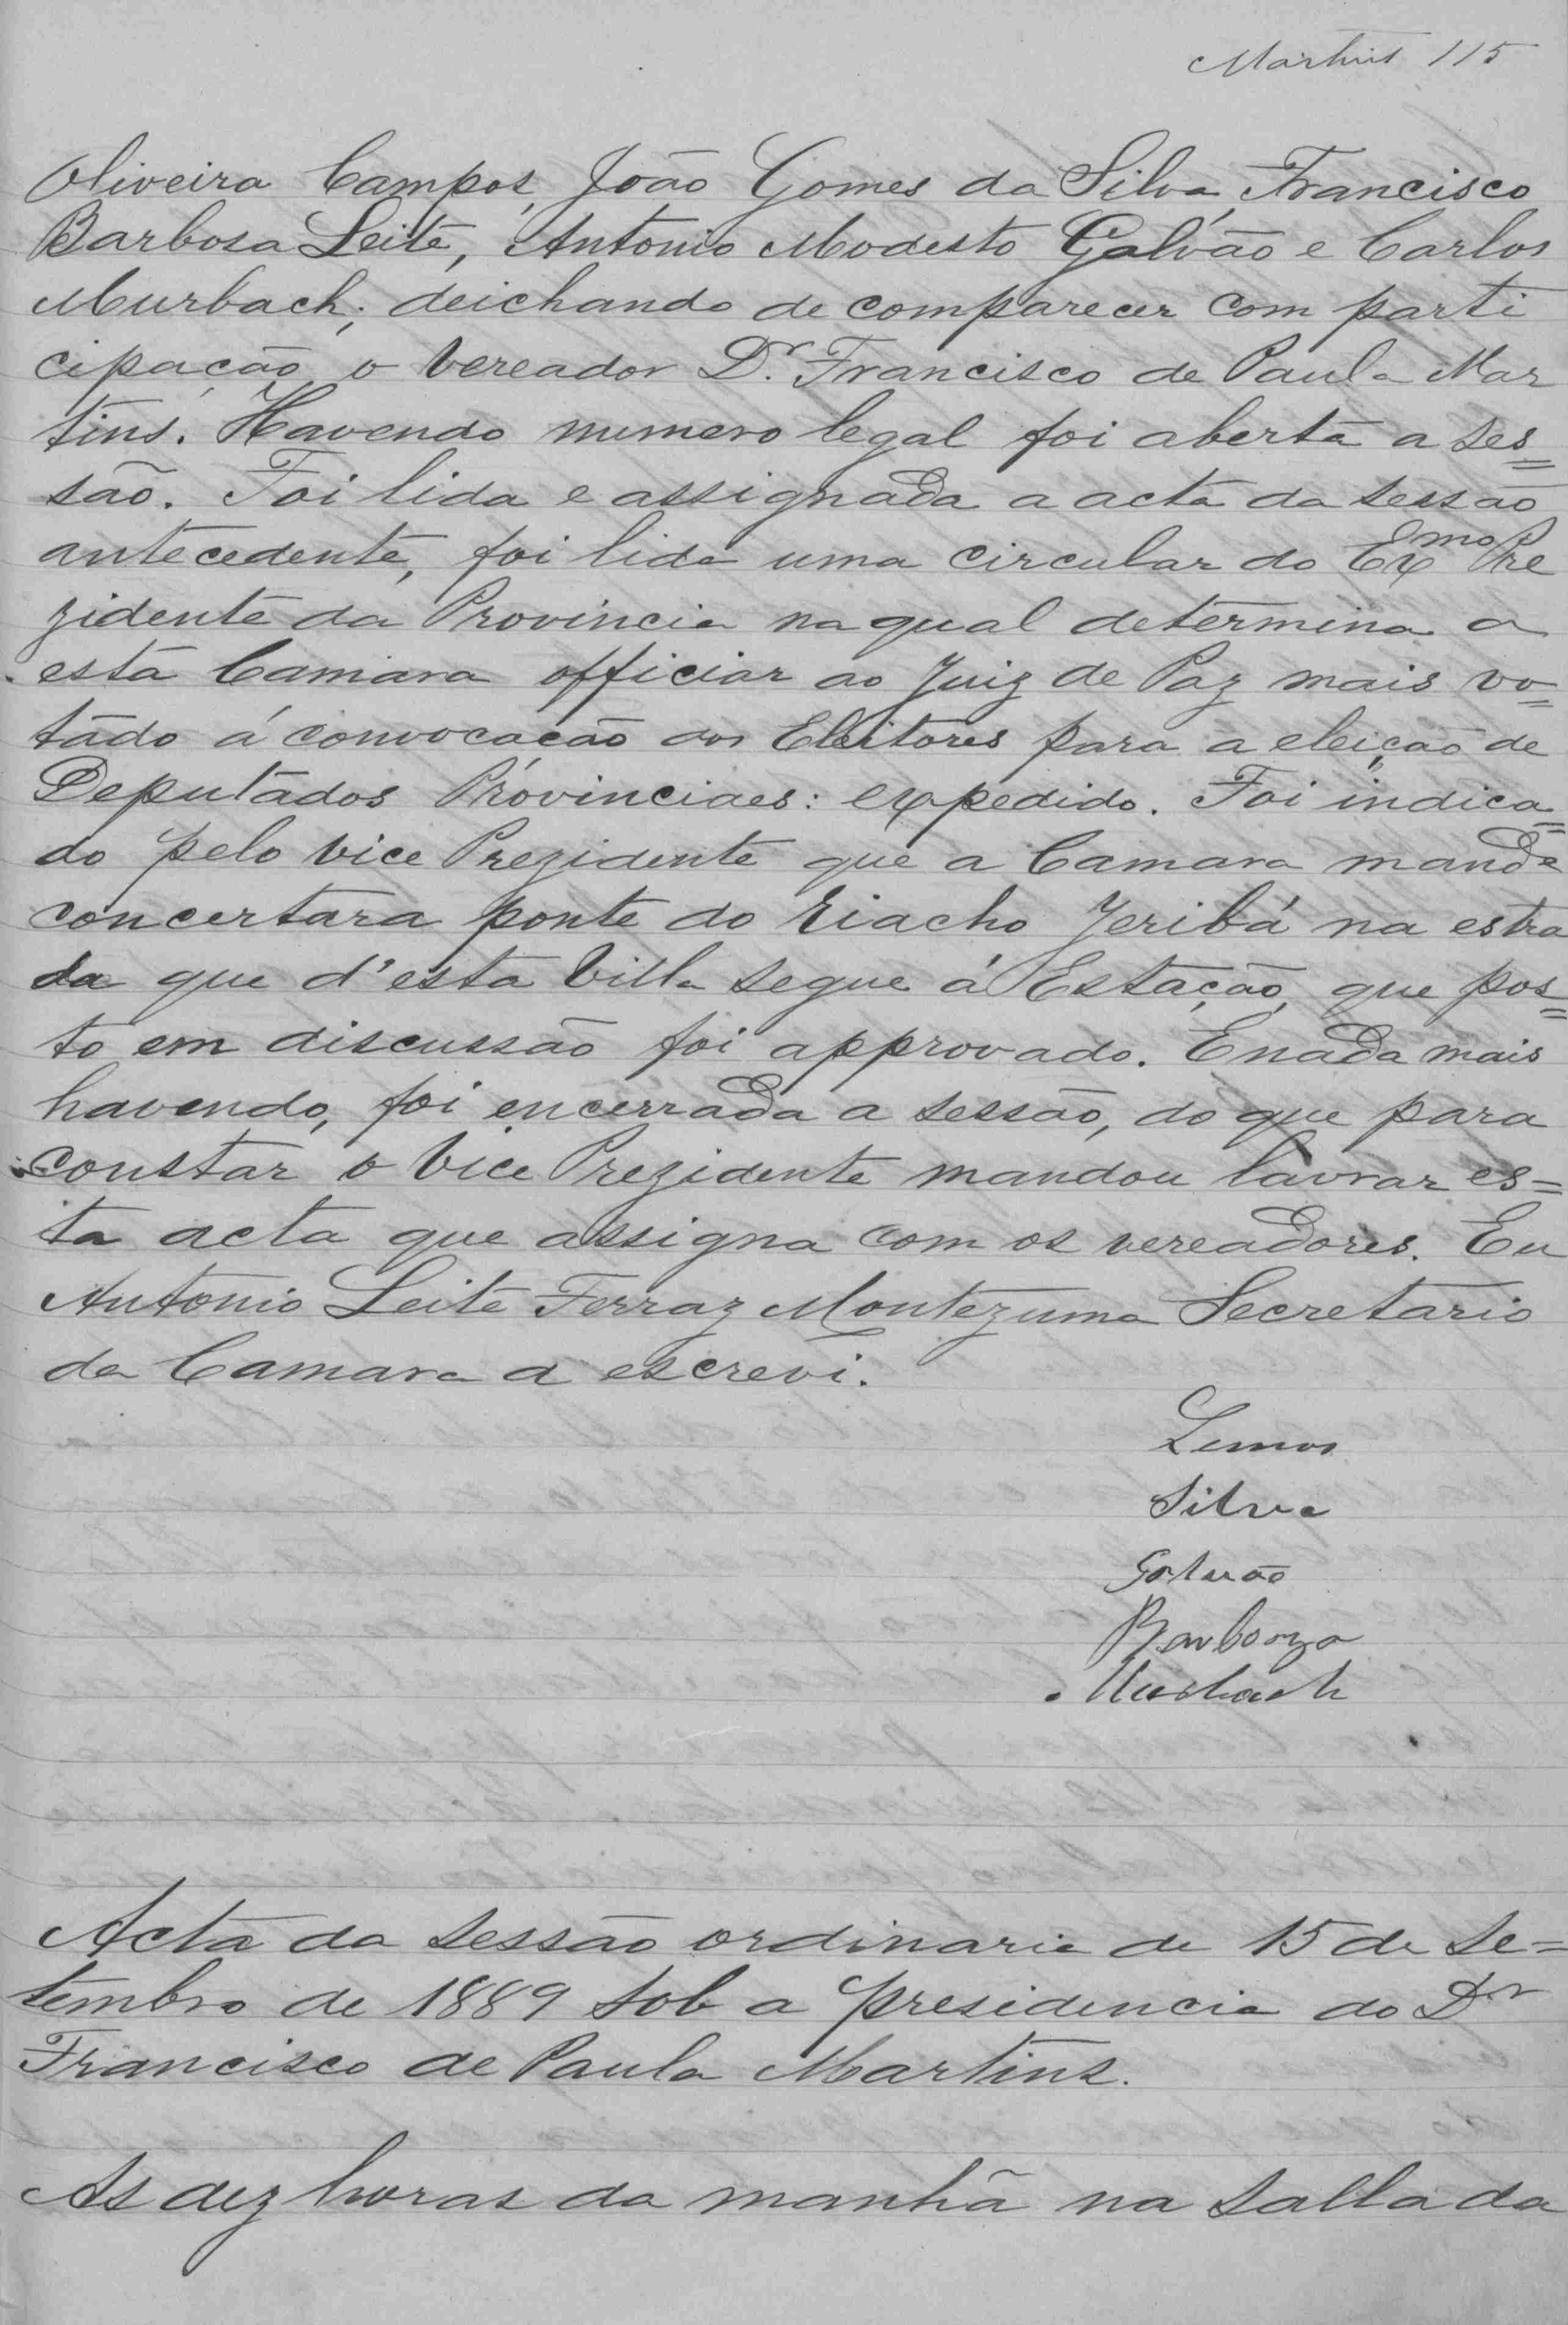 Martins 115
Oliveira Campos, João Gomes da Silva, Francisco
Barbosa Leite, Antonio Modesto Galvão e Carlos
Murbach; deichando de comparecer com parti
cipação o Vereador Dr. Francisco de Paula Mar
tins. Havendo numero legal foi aberta a ses=
são. Foi lida e assignada a acta da sessão
antecedente, foi lida uma circular do Exmo Pre
zidente da Provincia na qual determina a
esta Camara officiar ao Juiz de Paz mais vo=
tado á convocação dos Eleitores para a eleição de
Deputados Provinciaes: expedido. Foi indica=
do pelo Vice Prezidente que a Camara mande
concertar a ponte do riacho Jeribá na estra
da que d'esta Villa segue á Estação, que pos=
to em discussão foi approvado. E nada mais
havendo, foi encerrada a sessão, do que para
constar o Vice Prezidente mandou lavrar es=
ta acta que assigna com os vereadores. Eu
Antonio Leite Ferraz Montezuma Secretario
da Camara a escrevi.
Lemos
Silva
Galvão
Barboza
Murbach
Acta da sessão ordinaria de 15 de Se=
tembro de 1889 sob a presidencia do Dr
Francisco de Paula Martins.
As dez horas da manhã na salla da